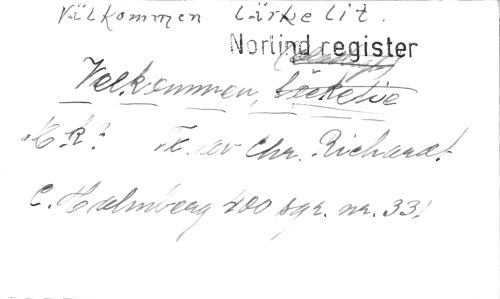 Välkommen lärkelit.
Norlind register
Velkommen, Lærkelil
"C. R.? T. av Chr. Richardt
C. Holmberg 200 sgr. nr. 33!